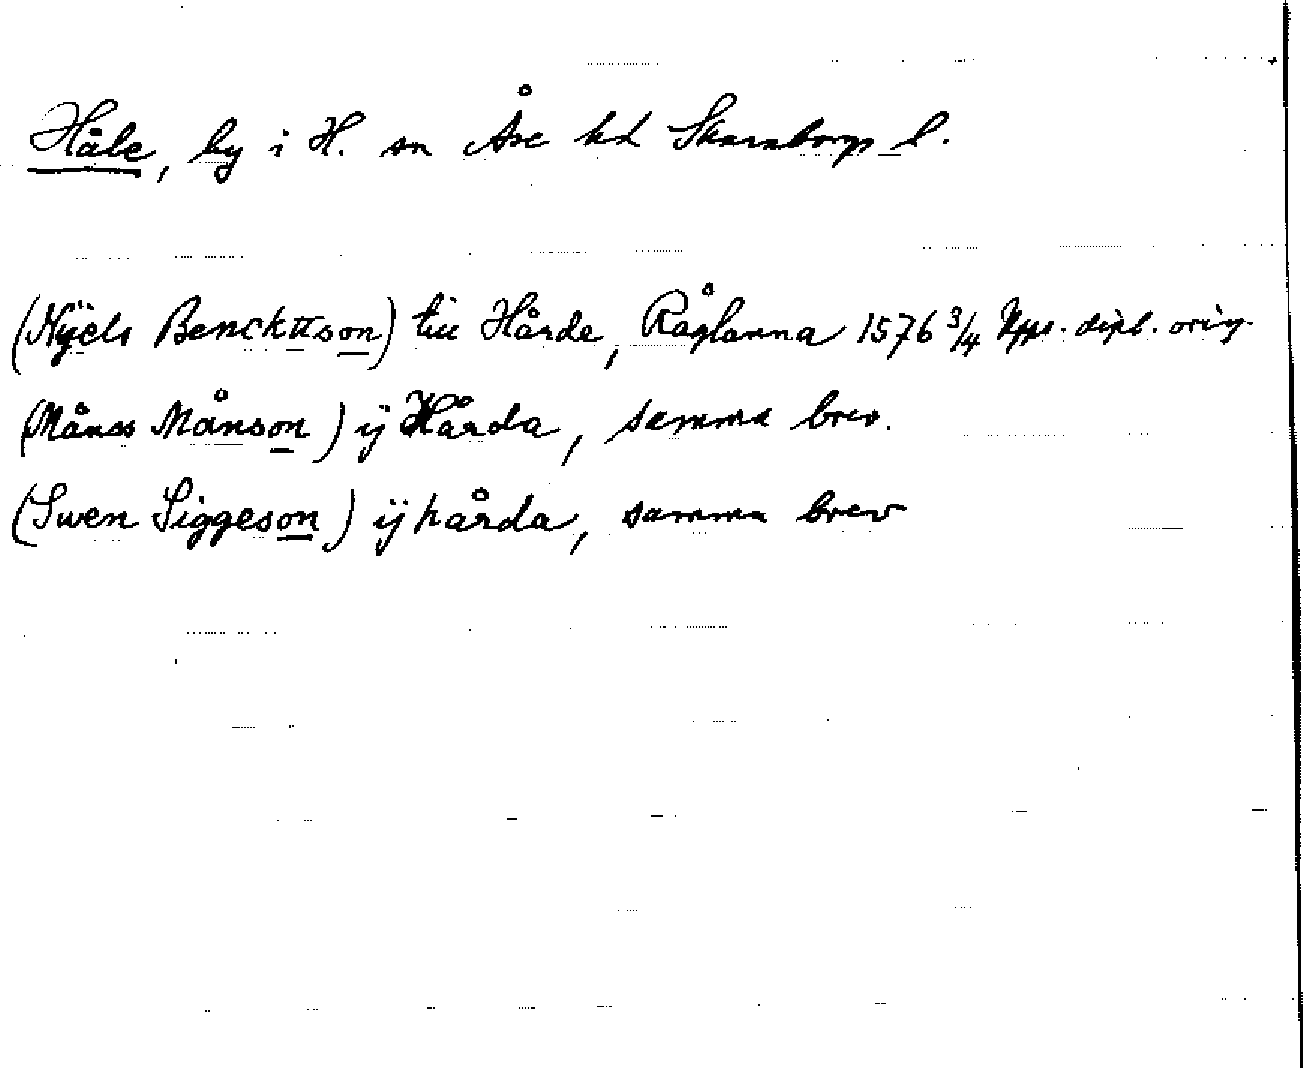 Håle, by i H. sn Åse hd Skaraborgs l.
(Nÿels Benckttson) till Hårde, Råglanna 1576 3/4 Upps. dipl. orig.
(Månss Månson) ÿ Hårda, samma brev.
(Swen Siggeson) ÿ hårda, samma brev